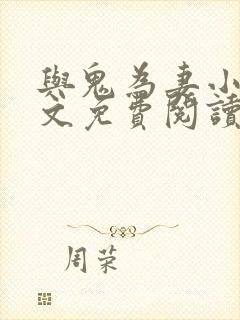 與鬼為妻小
文免費閱讀
周荣